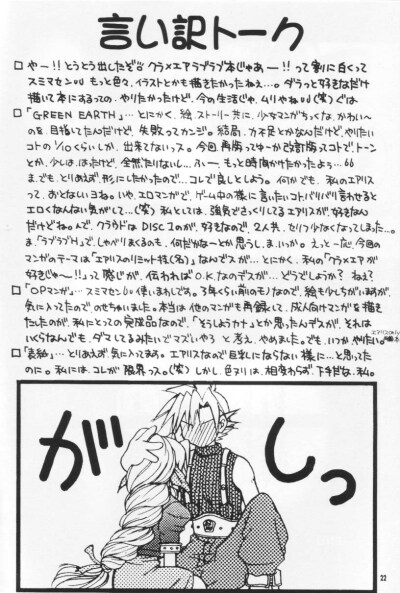 言い訳トーク
□ やー!!とうとう出したぞ クラ×エアラブラブ本じゃあー!!って割に白くって
スミマセン もっと色々、イラストとかも描きたかったねぇ…。ダラっと好きなだけ
描いて本にまとめるっての、やりたかったけど、今の生活じゃ、ムリやね(笑)ぐは
□「GREEN EARTH」…とにかく、絵 ストーリー共に、少女マンガちっくな、かわい〜
のを目指してたんだけど、失敗ってカンジ。結局、力不足とかなんだけど、やりたい
コトの1/10くらいしか、出来てないっス。今回、再版ってゆーか改訂版っスコトで、トーン
とか、少しは、はったけど、全然たりないし…、ふー、もっと時間かけたかったよぅ…
ま、でも、とりあえず、形にしたかったので…コレで良しとしよう。何かでも、私のエアリス
って、おとなしいヨね。いや、エロマンガで、ゲーム中の様に言いたいコトバリバリ言わせると
エロくなんない気がして…(笑)私としては、強気でさっくりしてるエアリスが、好きなん
だけどね。んで、クラウドは DISC1のが、好きなので、2人共、セリフ少なくなってしまった…。
ま、「ラブラブH」で、しゃべりまくるのも、何だかなーとか思うし、ま、いっか。えっとーだ、今回の
マンガのテーマは「エアリスのリミット技(名)」なんでスが…とにかく、私の「クラ×エアが
好きじゃー!!」って感じが、伝われば O.K.なのデスが…どうでしょうか? ねぇ?
□「OPマンガ」…スミマセン 使いまわしです。3年くらい前のモノなので、絵も少しちがいますが、
気に入ってたので、のせちゃいました。本当は他のマンガも再録して、成人向けマンガを描き
たしたのが、私にとっての完成品なので、「そうしようカナ」とか思ったんデスが、それは
いくらなんでも、ダマしてるみたいでマズいやろ と考え、やめました。でも、いつか、やりたい。
□「表紙」…とりあえず、気に入ってます。エアリスなので目玉にならない様に…と思ってた
のに。私には、コレが限界っス。(笑)しかし、色ヌリは、相変わらず、下手だな、私。
がしっ
22